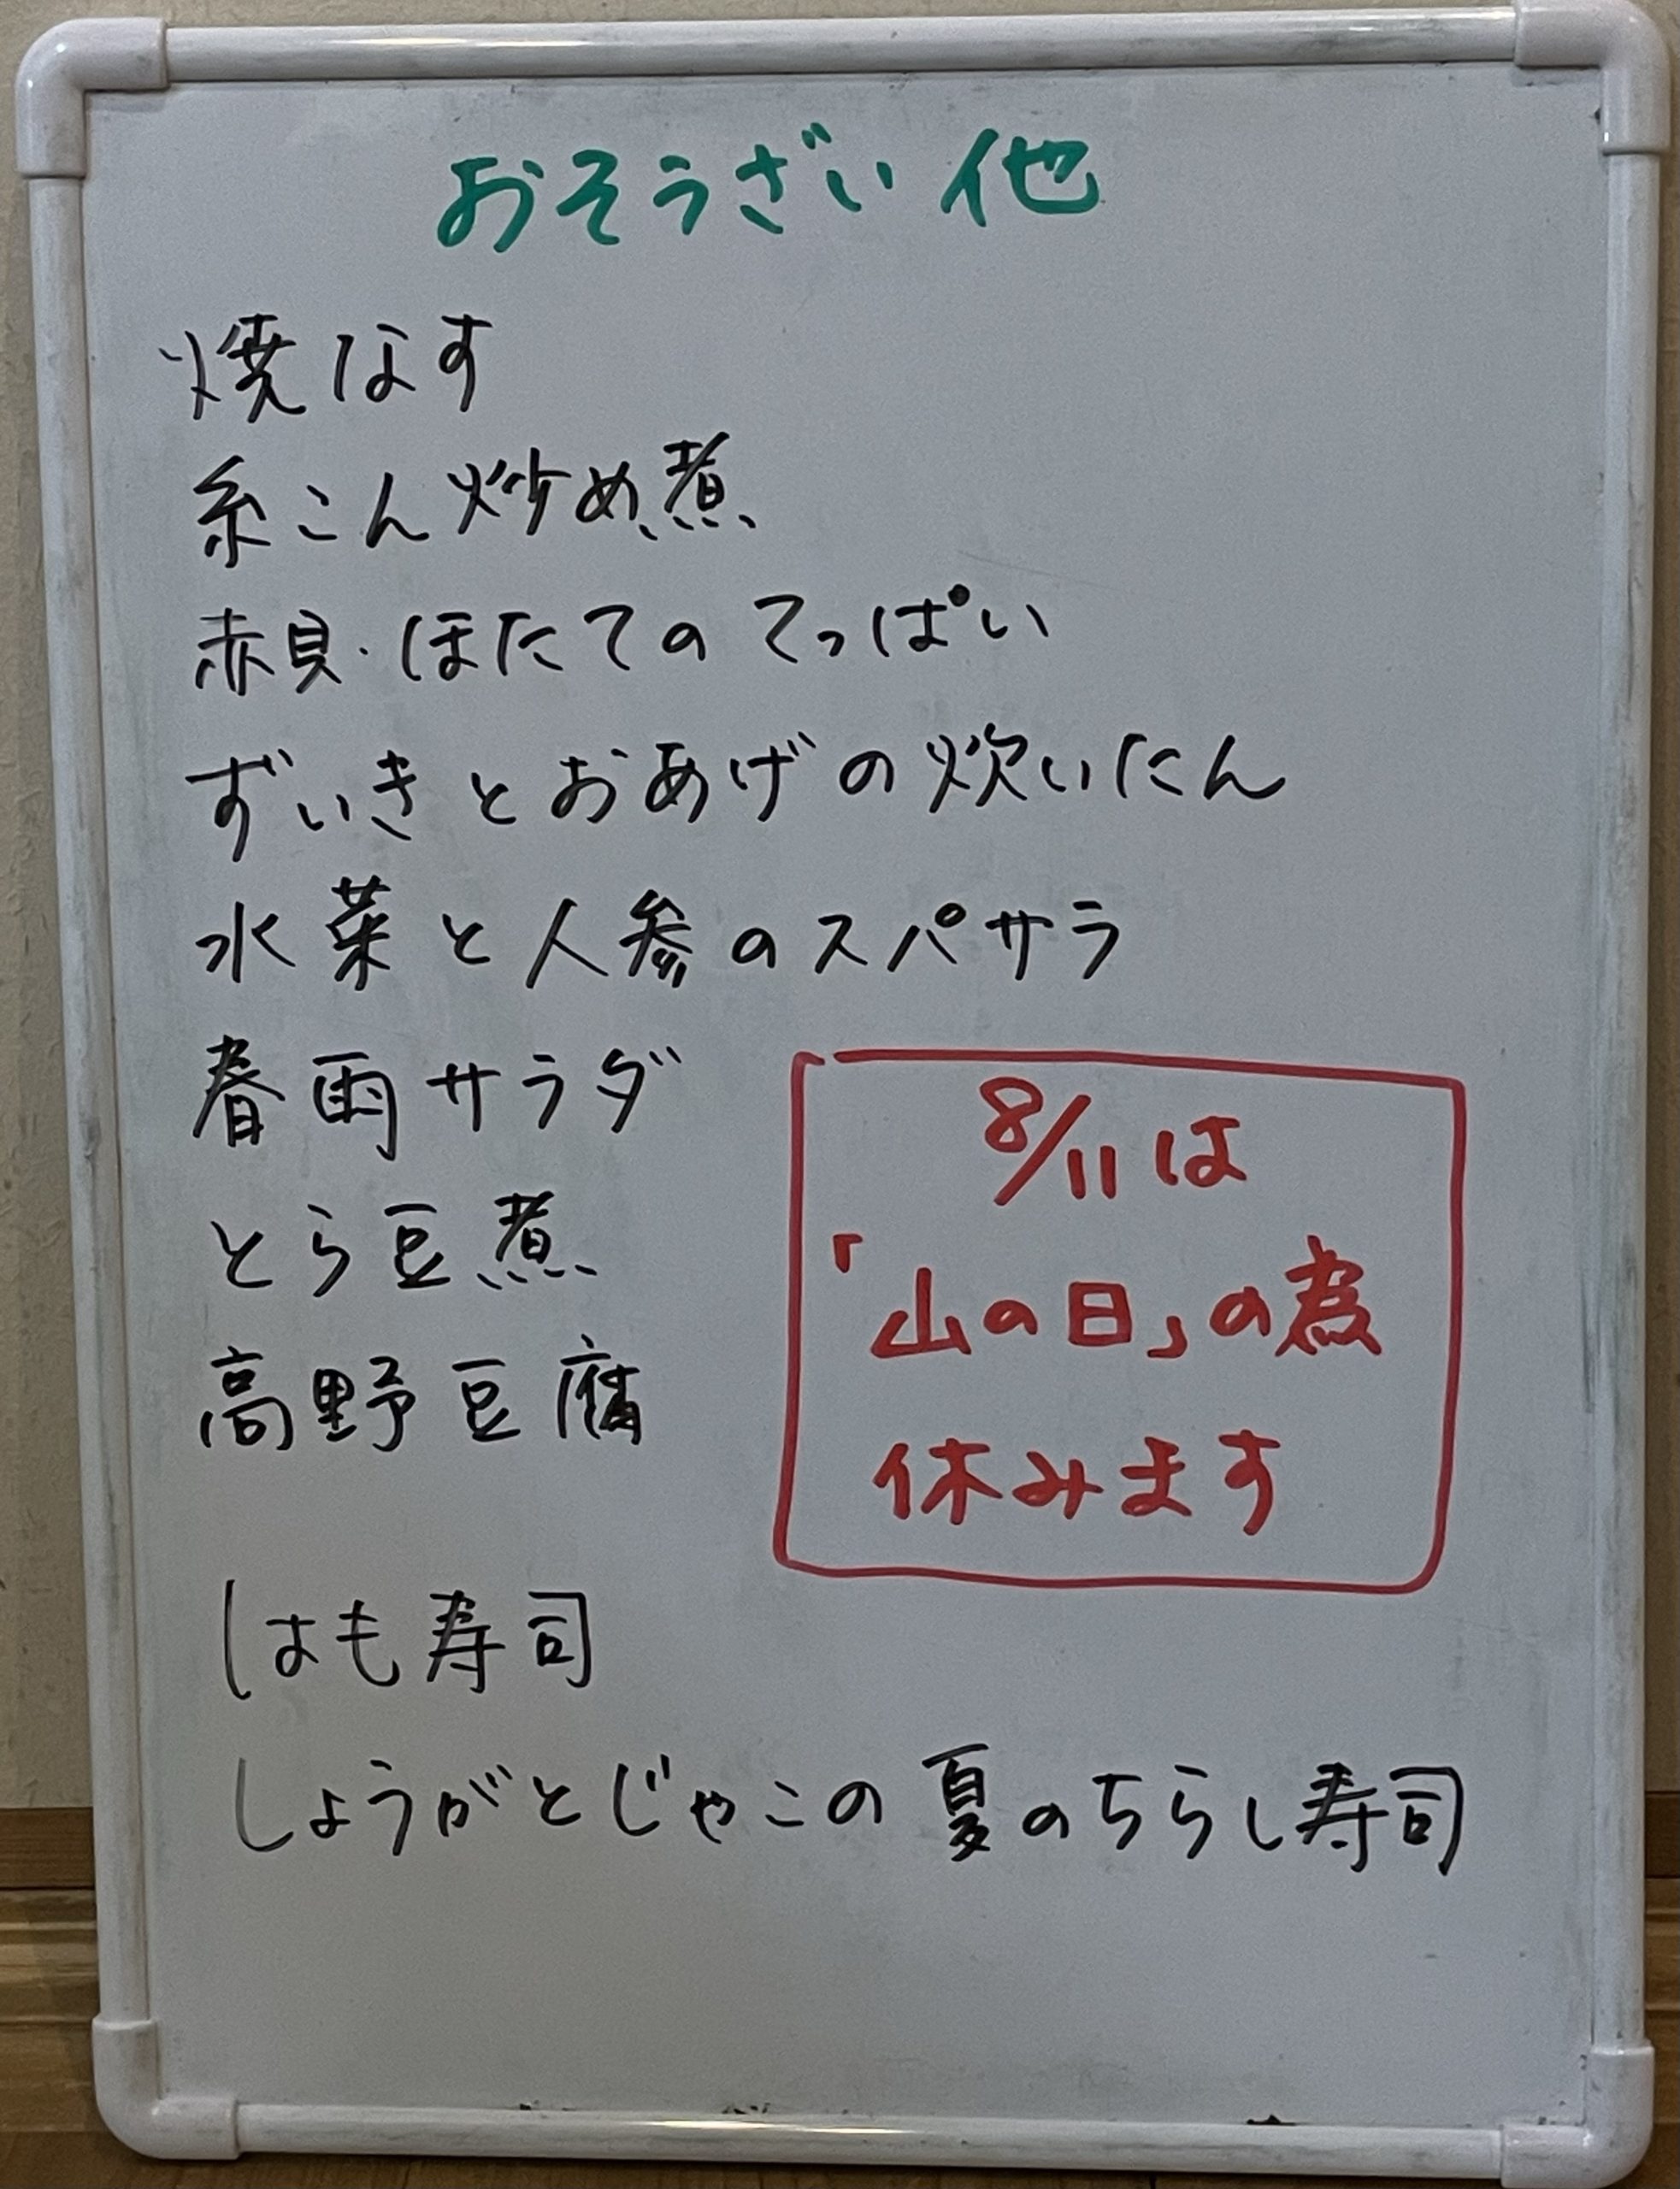 おそうざい他
焼なす
糸こん炒め煮
赤貝・ほたてのてっぱい
ずいきとおあげの炊いたん
水菜と人参のスパサラ
春雨サラダ
とら豆煮
高野豆腐
8/11は
「山の日」の為
休みます
はも寿司
しょうがとじゃこの夏のちらし寿司